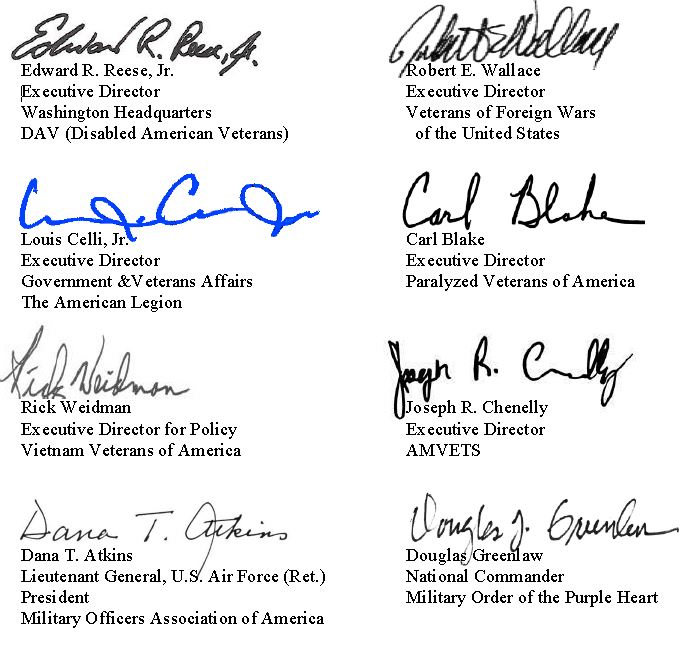 Edward R. Reese, Jr.
Edward R. Reese, Jr.
Executive Director
Washington Headquarters
DAV (Disabled American Veterans)
Robert E. Wallace
Robert E. Wallace
Executive Director
Veterans of Foreign Wars
of the United States
Louis Celli, Jr.
Executive Director
Government &Veterans Affairs
The American Legion
Carl Blake
Carl Blake
Executive Director
Paralyzed Veterans of America
Rick Weidman
Rick Weidman
Executive Director for Policy
Vietnam Veterans of America
Joseph R. Chenelly
Joseph R. Chenelly
Executive Director
AMVETS
Dana T. Atkins
Dana T. Atkins
Lieutenant General, U.S. Air Force (Ret.)
President
Military Officers Association of America
Douglas J. Greenlaw
Douglas Greenlaw
National Commander
Military Order of the Purple Heart